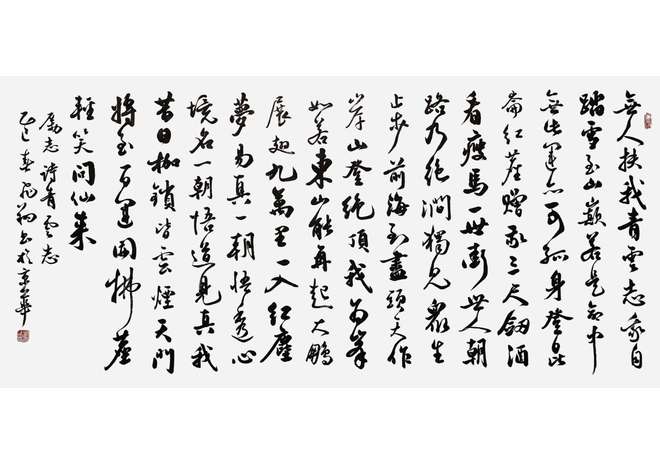 無人扶我青雲志我自
踏雪至山巔若是命中
無此運亦可孤身登昆
崙紅塵贈我三尺劍酒
看瘦馬一世街世人朝
路乃絕澗獨見眾生
止步前海到盡頭天作
岸山登絕頂我為峯
如若東山能再起大鵬
展翅九萬里一入紅塵
夢易真一朝悟透心
境名一朝悟道見真我
昔日枷鎖皆雲煙天門
將至百運開拂塵
輕笑問仙來
勵志詩青雲志
乙巳春飛翔書於京華